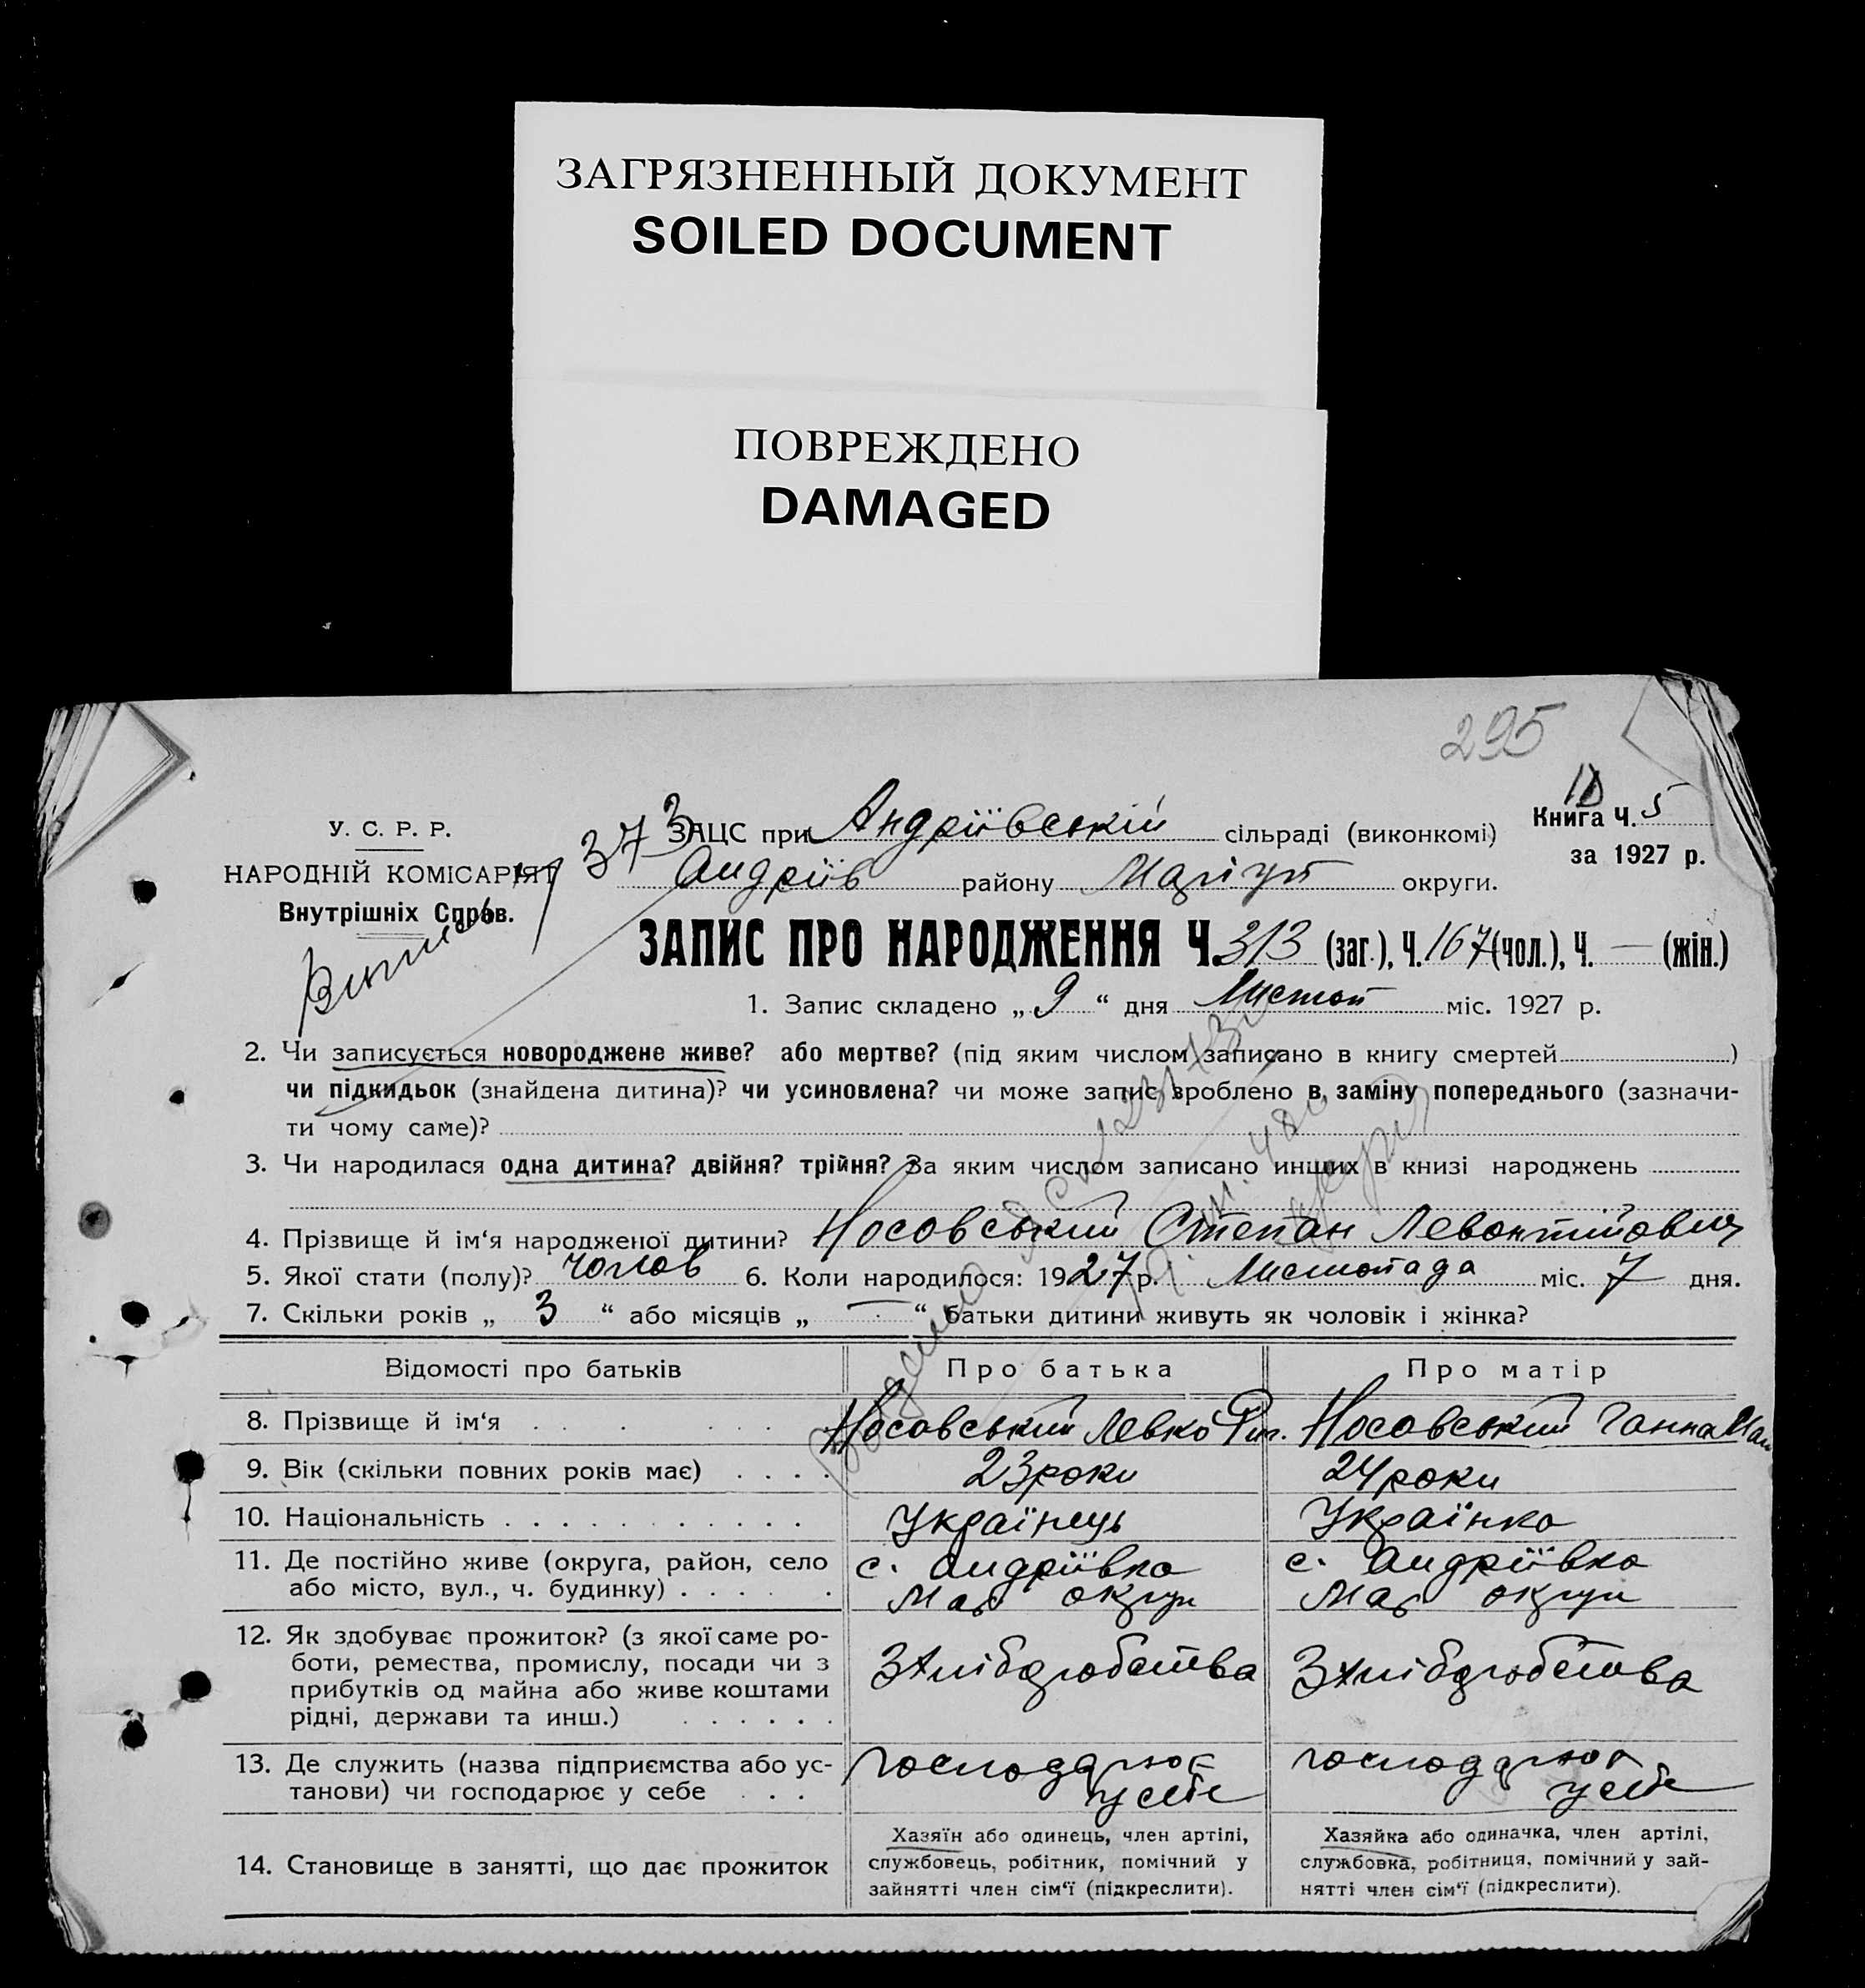 ЗАГРЯЗНЕННЫЙ ДОКУМЕНТ
SOILED DOCUMENT
ПОВРЕЖДЕНО
DAMAGED
295
У. С. Р. Р.
НАРОДНІЙ КОМІСАРІЯТ
Внутрішніх Справ.
373
ЗАЦС при Андріївській сільраді (виконкомі)
Книга Ч. 5
за 1927 р.
Андріїв району Маріуп округи.
ЗАПИС ПРО НАРОДЖЕННЯ Ч. 313 (заг.), Ч. 167 (чол.), Ч. — (жін.)
1. Запис складено „ 9 “ дня Листоп міс. 1927 р.
2. Чи записується новороджене живе? або мертве? (під яким числом записано в книгу смертей )
чи підкидьок (знайдена дитина)? чи усиновлена? чи може запис зроблено в заміну попереднього (зазначи-
ти чому саме)?
3. Чи народилася одна дитина? двійня? трійня? За яким числом записано инших в книзі народжень
4. Прізвище й ім‘я народженої дитини? Носовський Степан Левонтійович
5. Якої стати (полу)? Чолов 6. Коли народилося: 1927 р. Листопада міс. 7 дня.
7. Скільки років „ 3 “ або місяців „ — “ батьки дитини живуть як чоловік і жінка?
Відомості про батьків Про батька Про матір
8. Прізвище й ім‘я . . . . Носовський Левко Носовський Ганна
9. Вік (скільки повних років має) . . . . 23 роки 24 роки
10. Національність . . . . . . . . . . . Українець Українка
11. Де постійно живе (округа, район, село
або місто, вул., ч. будинку) . . . . .
с. Андріївка
Мар округи
с. Андріївка
Мар округи
12. Як здобуває прожиток? (з якої саме ро-
боти, ремества, промислу, посади чи з
прибутків од майна або живе коштами
рідні, держави та инш.) . . . . . .
З хліборобства
З хліборобства
13. Де служить (назва підприємства або ус-
танови) чи господарює у себе . . .
господарює
у себе
господарює
у себе
14. Становище в занятті, що дає прожиток
Хазяїн або одинець, член артілі,
службовець, робітник, помічний у
зайнятті член сім‘ї (підкреслити).
Хазяйка або одиначка, член артілі,
службовка, робітниця, помічний у зай-
нятті член сім‘ї (підкреслити).